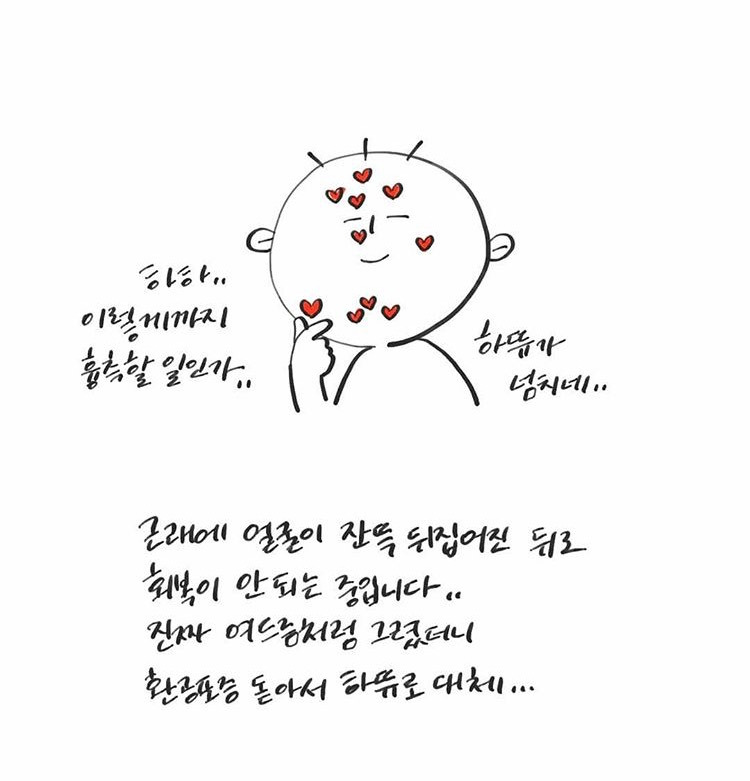 하하..
이렇게까지
흉측할 일인가..
하뜌가
넘치네..
근래에 얼굴이 잔뜩 뒤집어진 뒤로
회복이 안 되는 중입니다..
진짜 여드름처럼 그렸더니
환공포증 돋아서 하뜌로 대체...